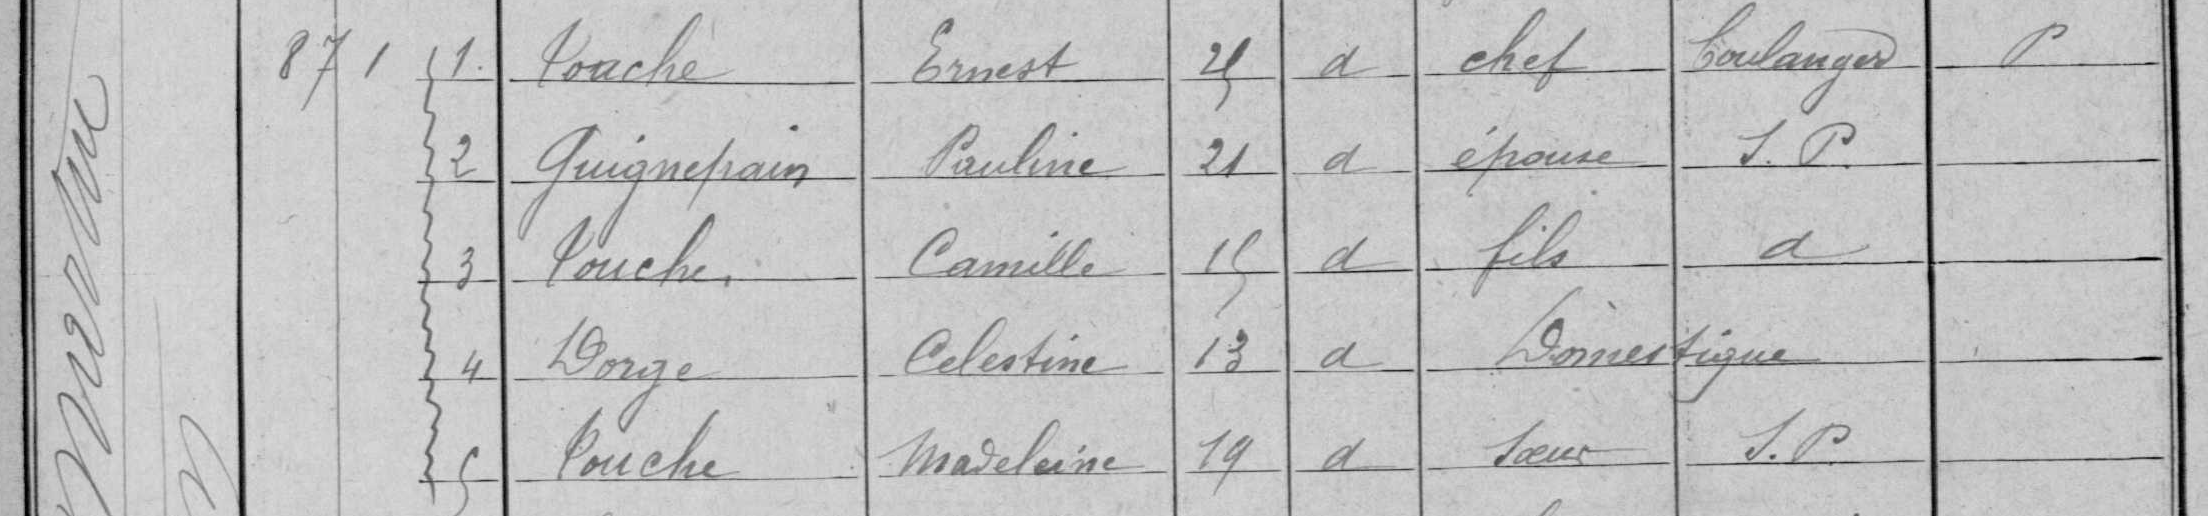 87 1 1. Touche Ernest 25 d chef boulanger P
2 Guignepain Pauline 21 d épouse S. P.
3 Touche Camille 15 d fils d
4 Dorge Celestine 13 d Domestique
5 Touche Madeleine 19 d soeur S. P.